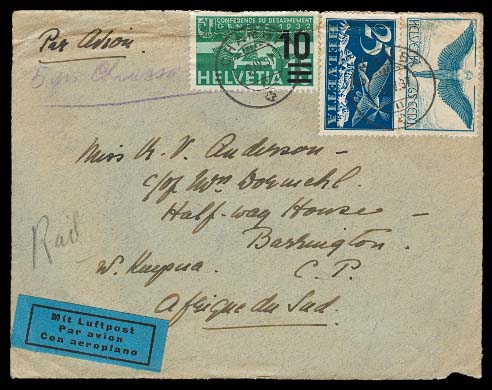 Par Avion.
CONFERENCE DU DESARMEMENT
GENEVE 1932
10
HELVETIA
25
HELVETIA
HELVETIA
Miss K. V. Anderson -
c/of Mrs
Half-way House -
Barkington.
C. P.
Afrique du Sud.
Rail
Mit Luftpost
Par avion
Con aeroplano